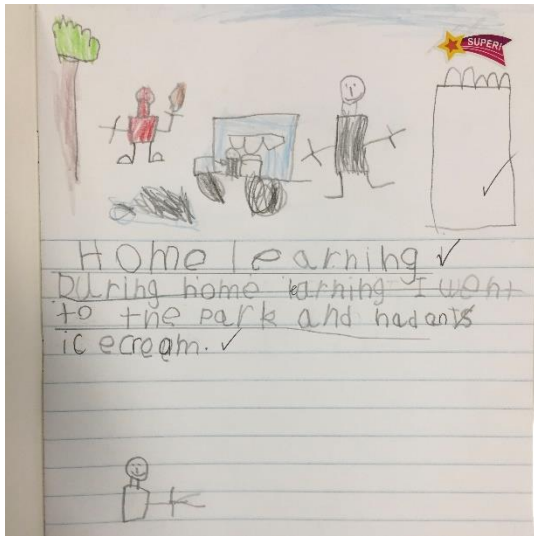 SUPER!
Home learning
During home larning I went
to the park and had ants
ic ecream.